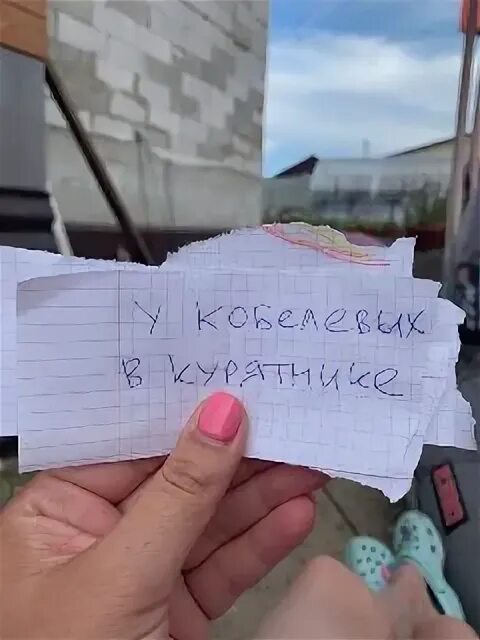 У КОБЕЛЕВЫХ
В КУРЯТНИКЕ